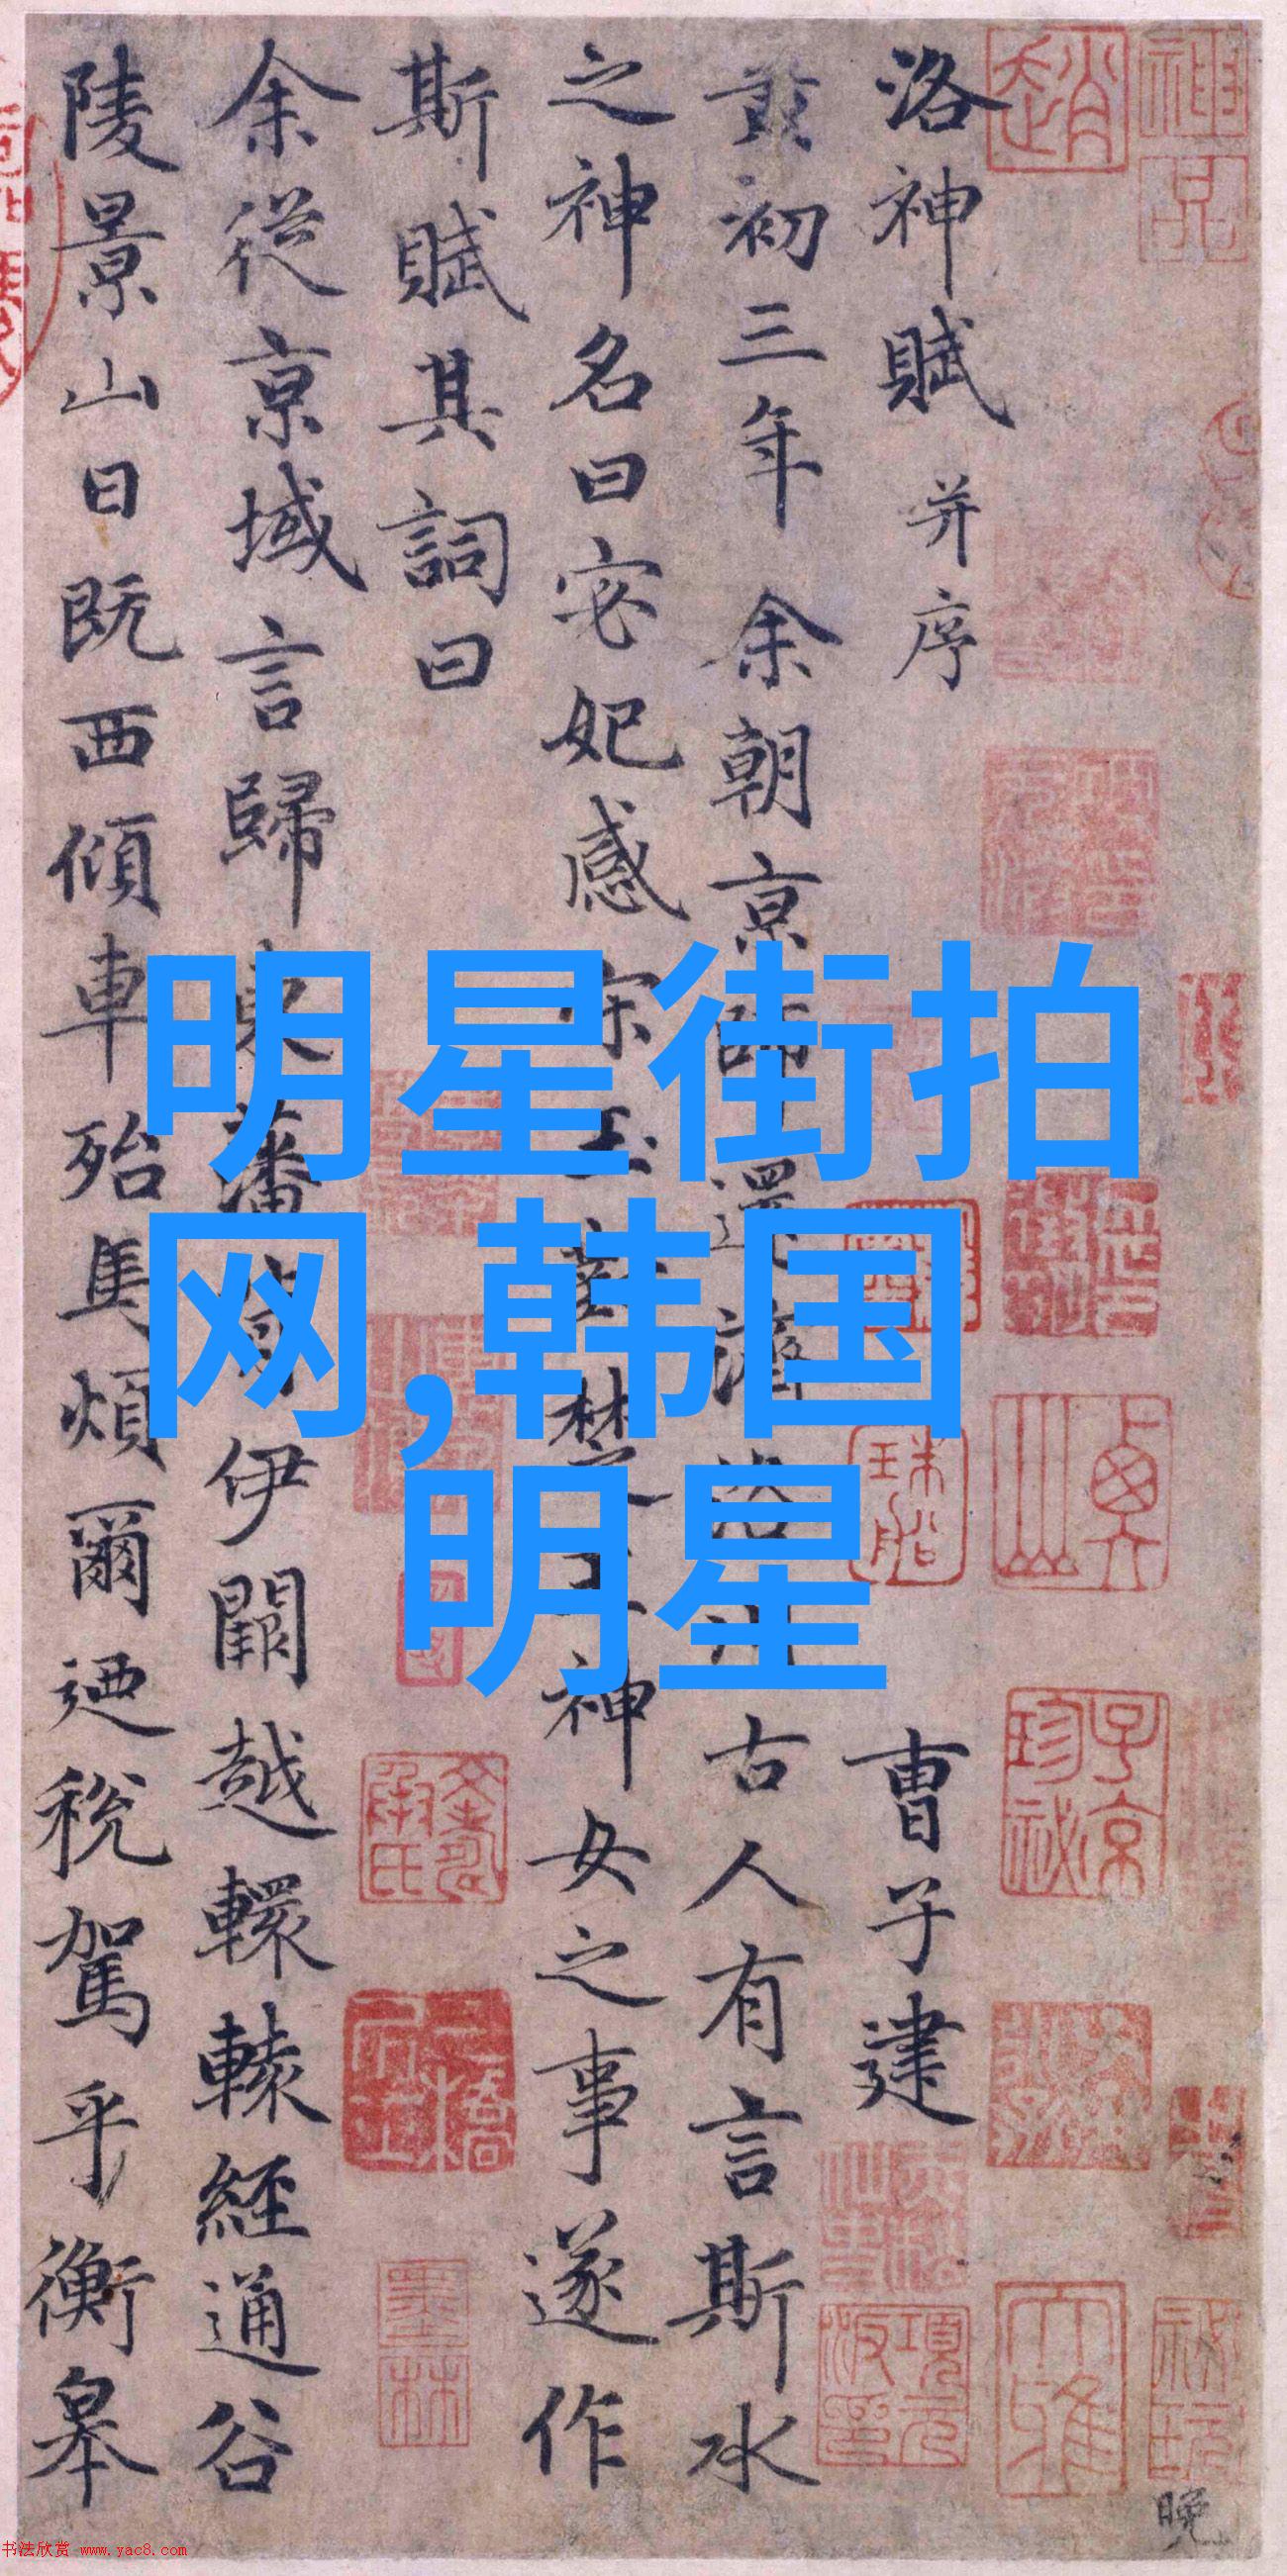 洛神賦 并序 曹子建
黃初三年余朝京師還濟洛川古人有言斯水
之神名曰宓妃感宋玉對楚王神女之事遂作
斯賦其詞曰
余從京域言歸東藩背伊闕越轘轅經通谷
陵景山日既西傾車殆馬煩爾迺稅駕乎衡皋
明星街拍
网,韩国
明星
趙
神品
子京珍秘
墨林
大雅
晚
书法欣赏 www.yac8.com